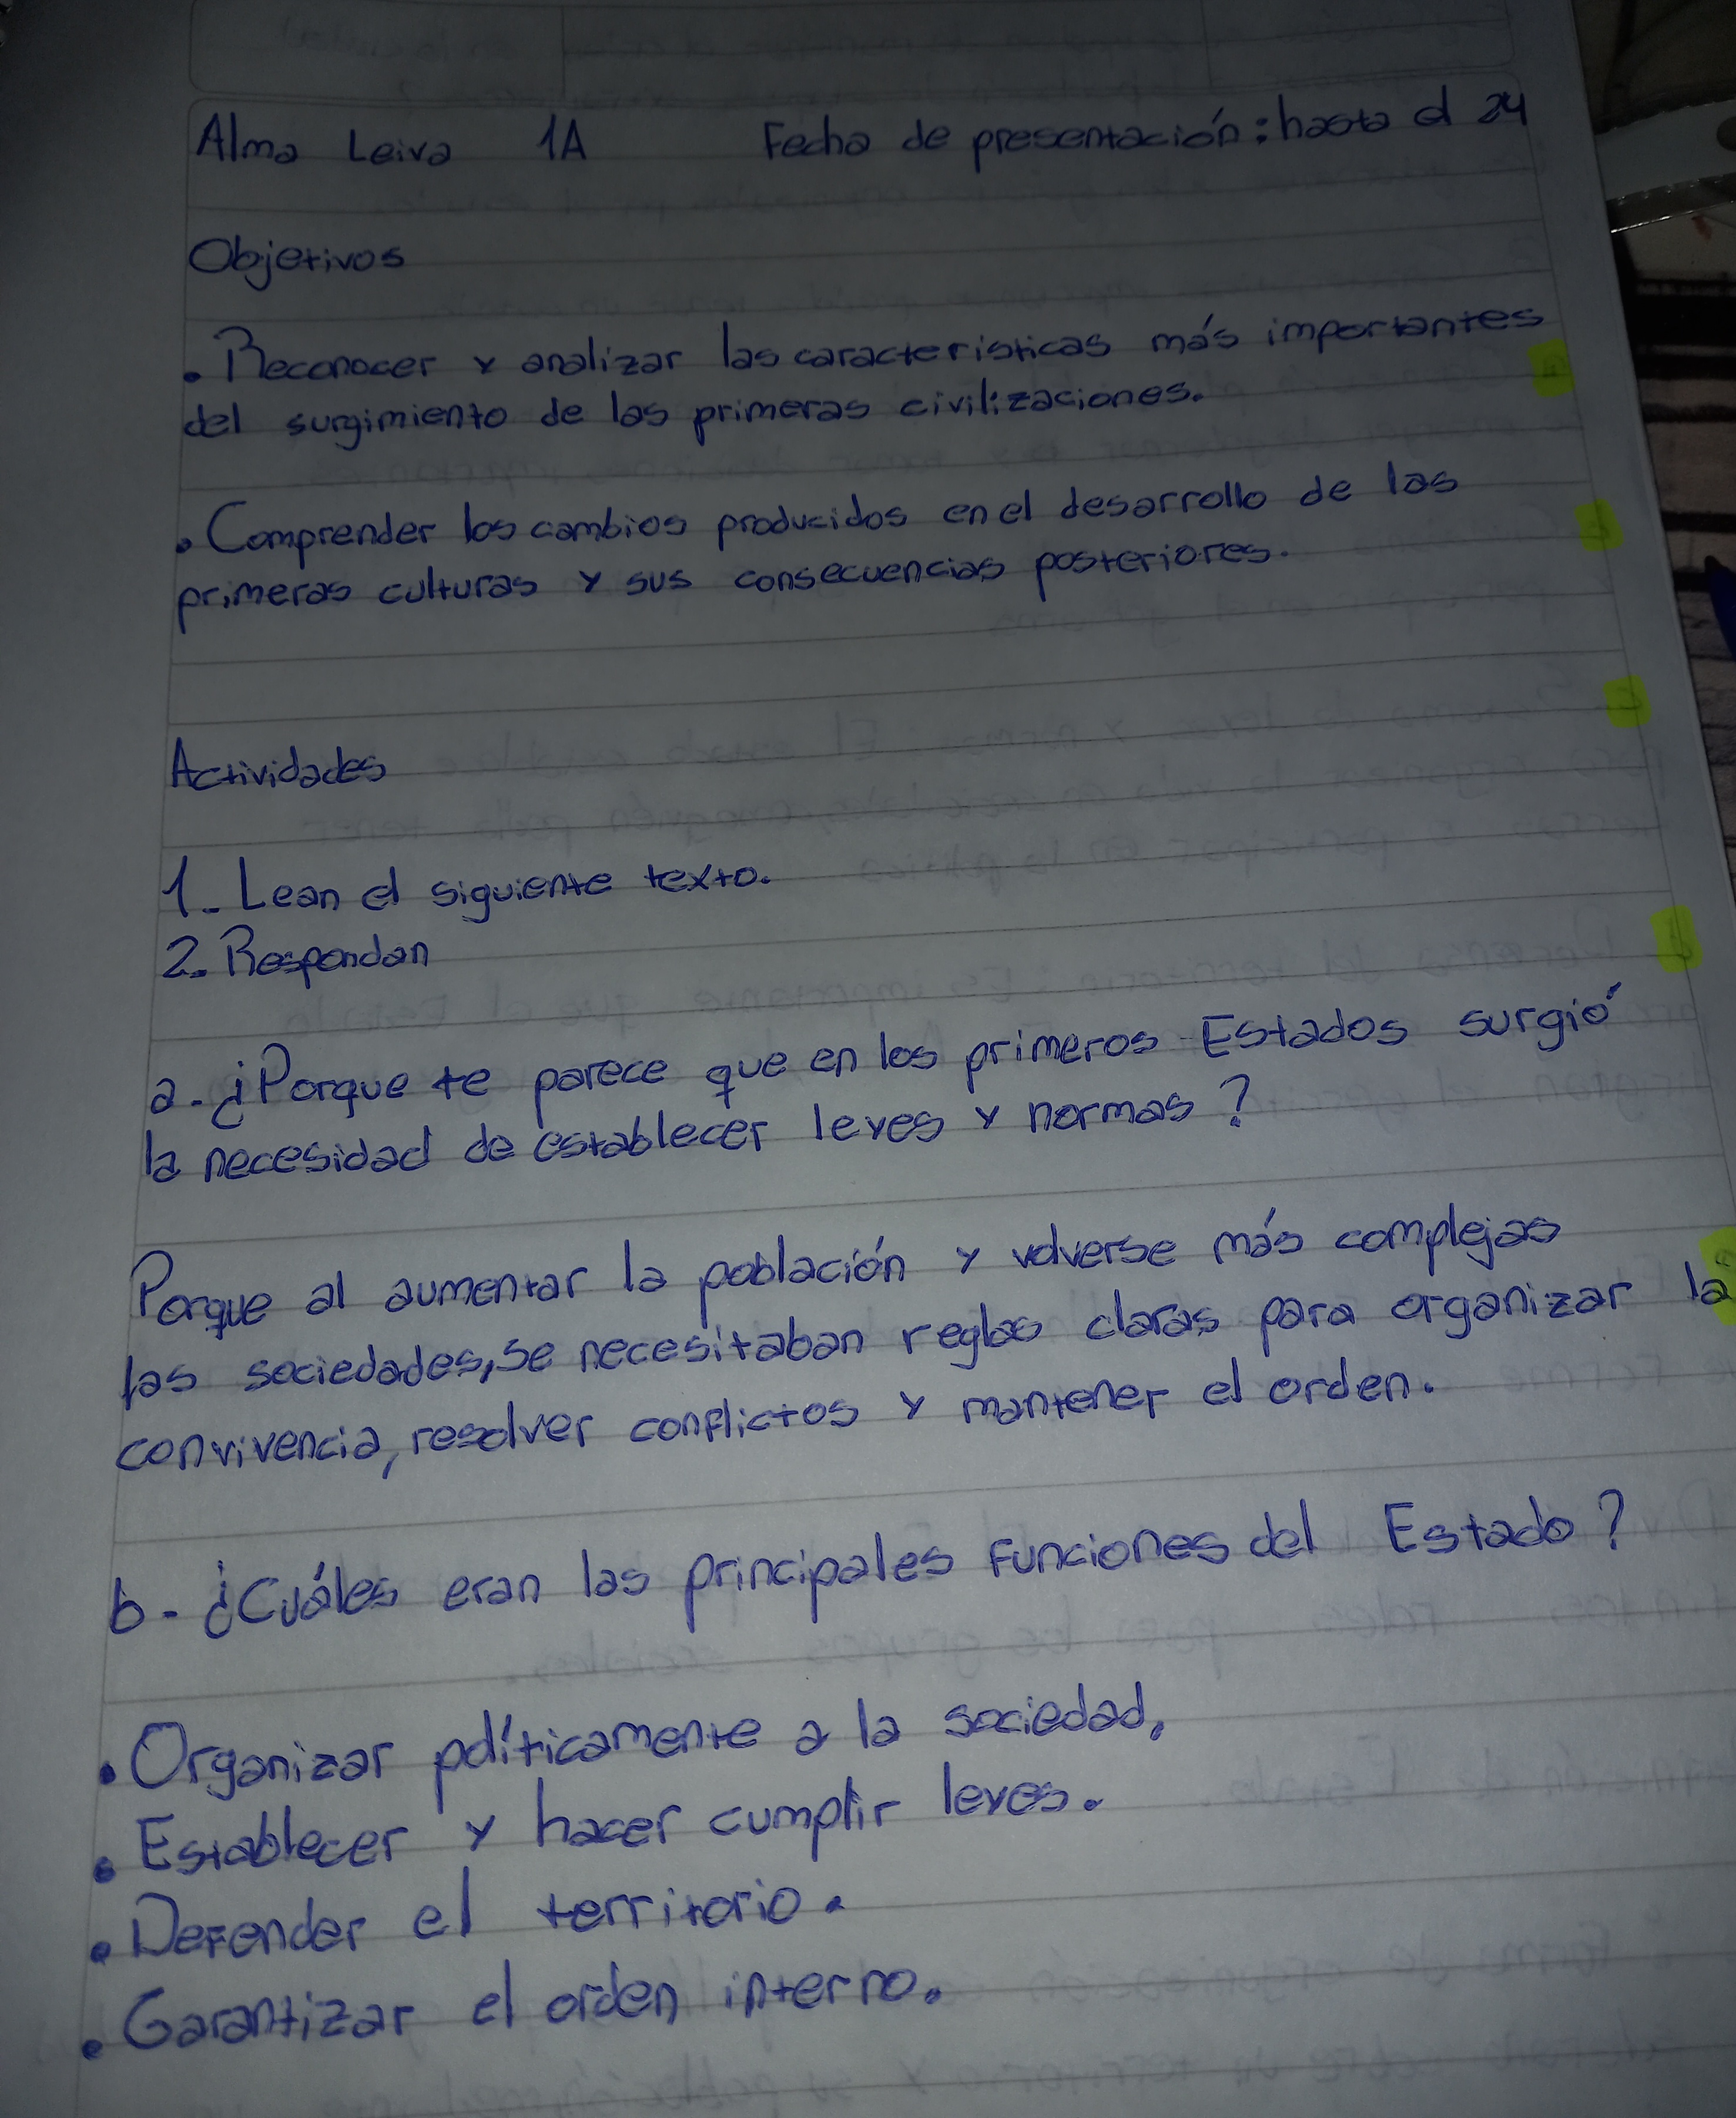 Alma Leiva 1A Fecha de presentación: hasta el 24
Objetivos
• Reconocer y analizar las caracteristicas más importantes
del surgimiento de las primeras civilizaciones.
• Comprender los cambios producidos en el desarrollo de las
primeras culturas y sus consecuencias posteriores.
Actividades
1_ Lean el siguiente texto.
2. Respondan
a- ¿Porque te parece que en los primeros Estados surgió
la necesidad de establecer leyes y normas?
Porque al aumentar la población y volverse más complejas
las sociedades, se necesitaban reglas claras para organizar la
convivencia, resolver conflictos y mantener el orden.
b- ¿Cuáles eran las principales funciones del Estado?
• Organizar políticamente a la sociedad.
• Establecer y hacer cumplir leyes.
• Defender el territorio.
• Garantizar el orden interno.